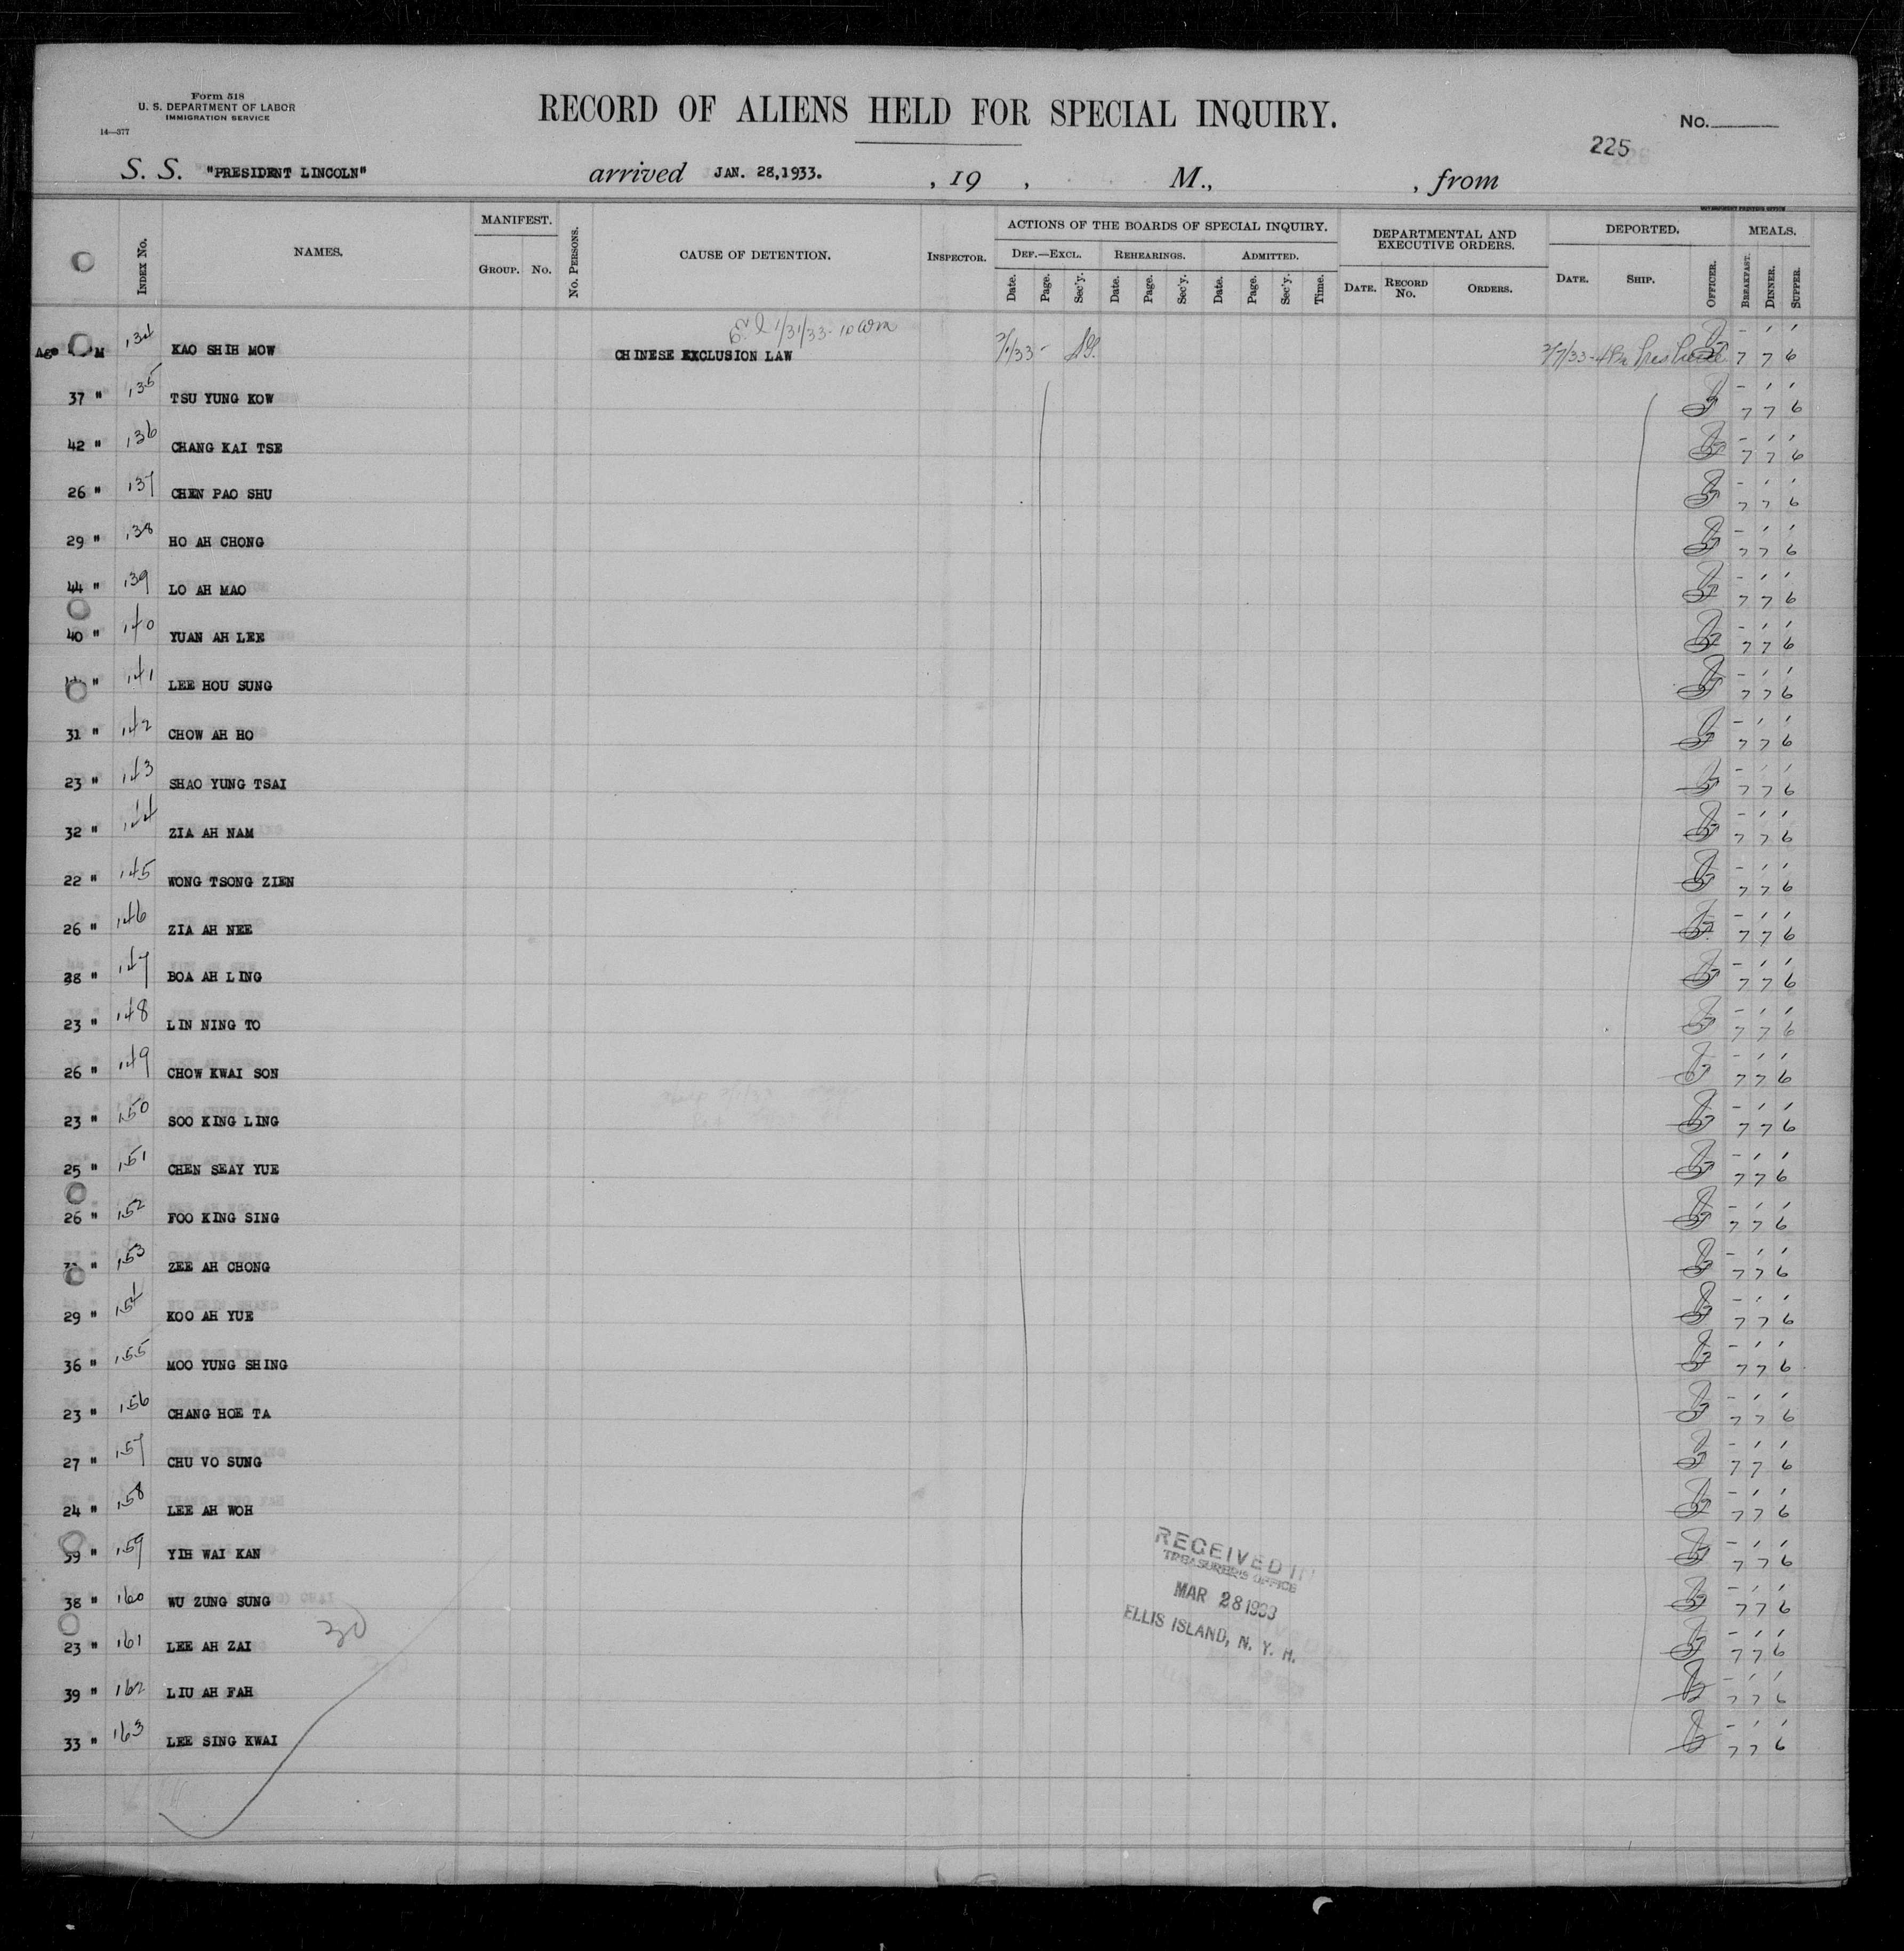 Form 518
U. S. DEPARTMENT OF LABOR
IMMIGRATION SERVICE
14—377
RECORD OF ALIENS HELD FOR SPECIAL INQUIRY.
No.
225
S. S. "PRESIDENT LINCOLN" arrived JAN. 28,1933. , 19 , M., , from
GOVERNMENT PRINTING OFFICE
INDEX No. NAMES. MANIFEST. No. PERSONS. CAUSE OF DETENTION. INSPECTOR. ACTIONS OF THE BOARDS OF SPECIAL INQUIRY. DEPARTMENTAL AND EXECUTIVE ORDERS. DEPORTED. MEALS.
GROUP. No. DEF.—EXCL. REHEARINGS. ADMITTED. DATE. RECORD No. ORDERS. DATE. SHIP. OFFICER. BREAKFAST. DINNER. SUPPER.
Date. Page. Sec'y. Date. Page. Sec'y. Date. Page. Sec'y. Time.
1/31/33- 10 am
Age M 134 KAO SHIH MOW CHINESE EXCLUSION LAW 2/1/33 - 2/7/33 - - ' ' 7 7 6
37 " 135 TSU YUNG KOW - ' ' 7 7 6
42 " 136 CHANG KAI TSE - ' ' 7 7 6
26 " 137 CHEN PAO SHU - ' ' 7 7 6
29 " 138 HO AH CHONG - ' ' 7 7 6
44 " 139 LO AH MAO - ' ' 7 7 6
40 " 140 YUAN AH LEE - ' ' 7 7 6
" 141 LEE HOU SUNG - ' ' 7 7 6
31 " 142 CHOW AH HO - ' ' 7 7 6
23 " 143 SHAO YUNG TSAI - ' ' 7 7 6
32 " 144 ZIA AH NAM - ' ' 7 7 6
22 " 145 WONG TSONG ZIEN - ' ' 7 7 6
26 " 146 ZIA AH NEE - ' ' 7 7 6
38 " 147 BOA AH LING - ' ' 7 7 6
23 " 148 LIN NING TO - ' ' 7 7 6
26 " 149 CHOW KWAI SON - ' ' 7 7 6
23 " 150 SOO KING LING - ' ' 7 7 6
25 " 151 CHEN SEAY YUE - ' ' 7 7 6
26 " 152 FOO KING SING - ' ' 7 7 6
" 153 ZEE AH CHONG - ' ' 7 7 6
29 " 154 KOO AH YUE - ' ' 7 7 6
36 " 155 MOO YUNG SHING - ' ' 7 7 6
23 " 156 CHANG HOE TA - ' ' 7 7 6
27 " 157 CHU VO SUNG - ' ' 7 7 6
24 " 158 LEE AH WOH - ' ' 7 7 6
39 " 159 YIH WAI KAN - ' ' 7 7 6
38 " 160 WU ZUNG SUNG - ' ' 7 7 6
23 " 161 LEE AH ZAI 30 - ' ' 7 7 6
39 " 162 LIU AH FAH - ' ' 7 7 6
33 " 163 LEE SING KWAI - ' ' 7 7 6
RECEIVED IN
TREASURER'S OFFICE
MAR 28 1933
ELLIS ISLAND, N. Y. H.